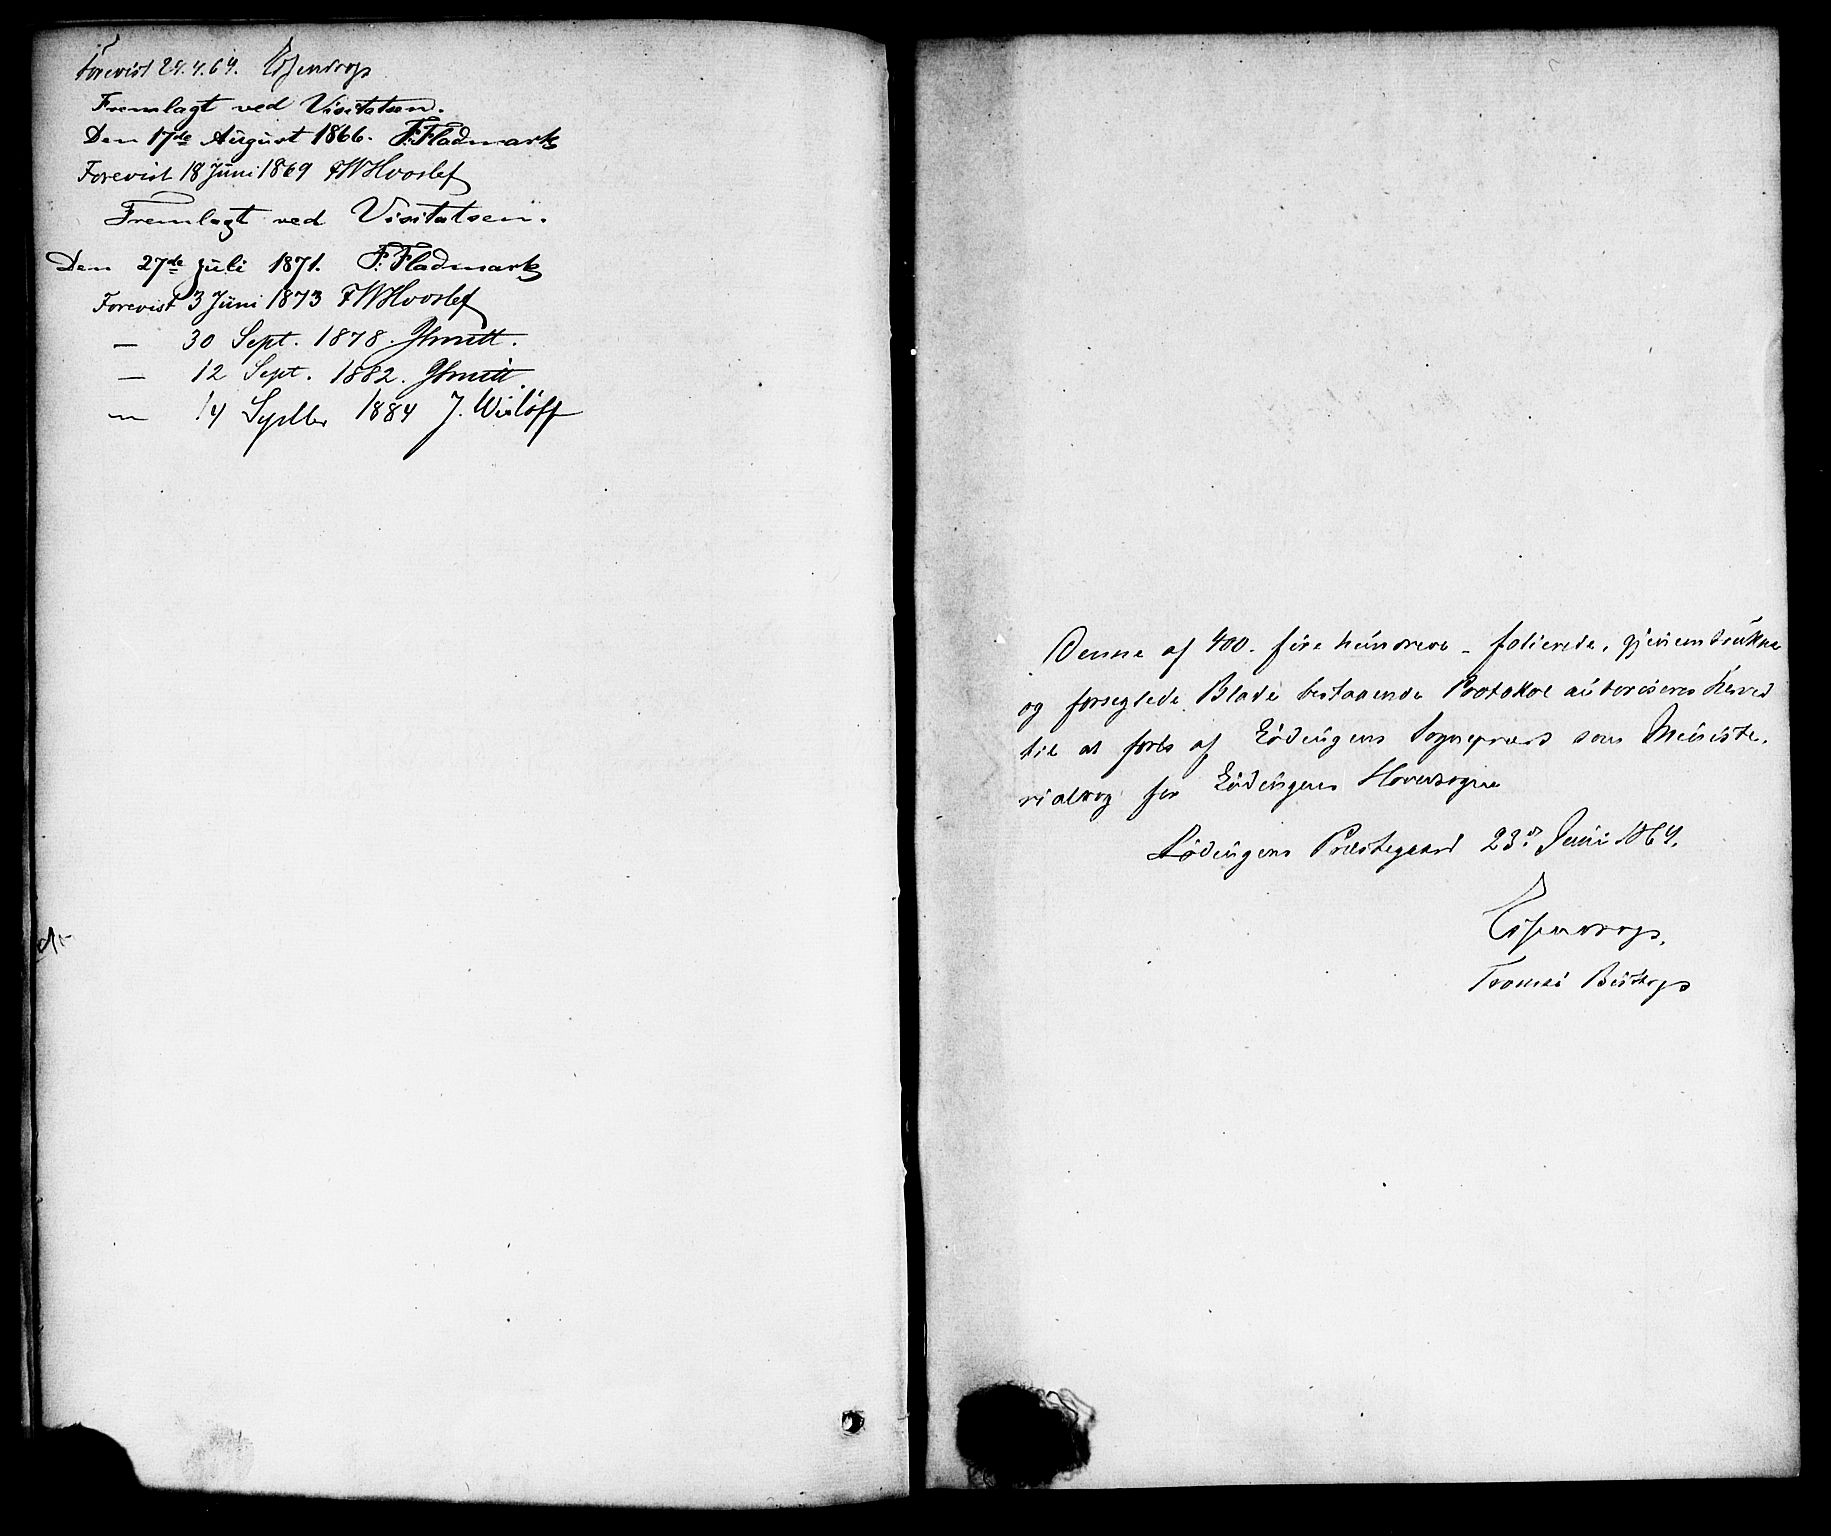 Forevist 24.4.64. Essendrop
Fremlagt ved Visitatsen.
Den 17de August 1866. F. Fladmark
Forevist 18 Juni 1869 FWHvoslef
Fremlagt ved Visitatsen.
Den 27de Juli 1871. F. Fladmark
Forevist 3 Juni 1873 FWHvoslef
— 30 Sept. 1878. JSmitt.
— 12 Sept. 1882. JSmitt
— 14 Septbr 1884 J. Wisløff
Denne af 400. fire hundrede - folierede, gjenemtrukne
og forseglede Blade bestaaende Protokol autoriseres herved
til at føres af Lødingens Sognepræst som Ministe-
rialbog for Lødingens Hovedsogn
Lødingens Præstegaard 23d Juni 1864.
Essendrop,
Tromsø Biskop